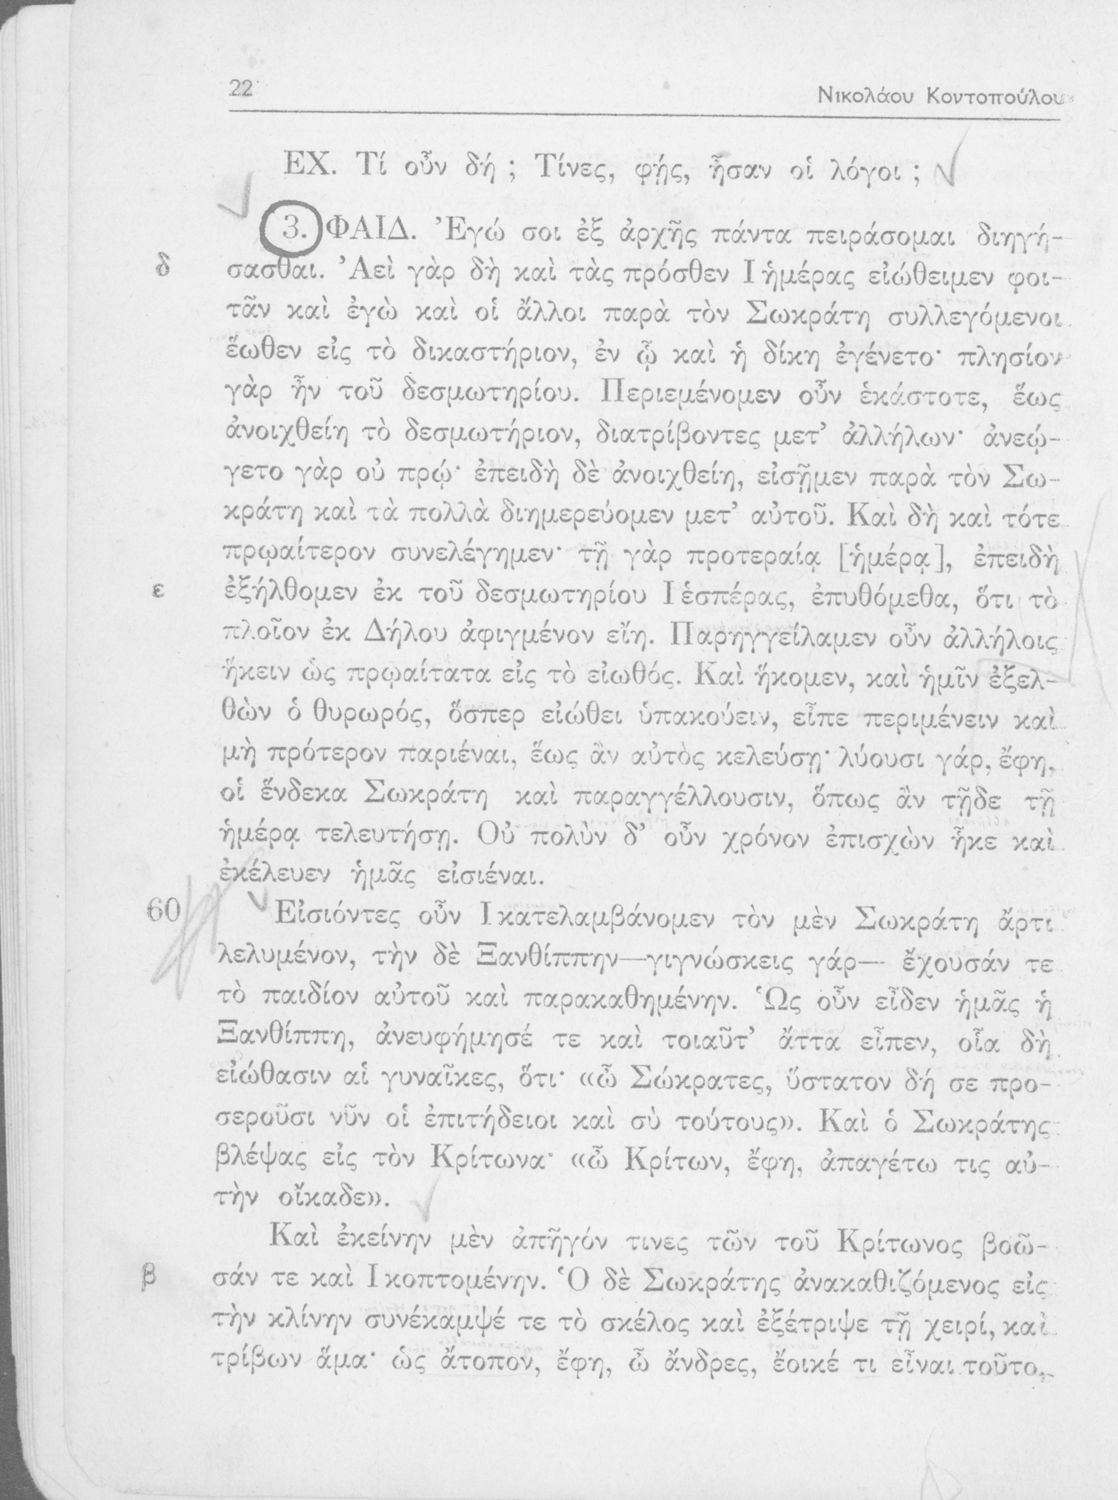 22
Νικολάου Κοντοπούλου
ΕΧ. Τί οὖν δή ; Τίνες, φῄς, ἦσαν οἱ λόγοι ;
3. ΦΑΙΔ. Ἐγώ σοι ἐξ ἀρχῆς πάντα πειράσομαι διηγή-
δ σασθαι. Ἀεὶ γὰρ δὴ καὶ τὰς πρόσθεν Ι ἡμέρας εἰώθειμεν φοι-
τᾶν καὶ ἐγὼ καὶ οἱ ἄλλοι παρὰ τὸν Σωκράτη συλλεγόμενοι
ἕωθεν εἰς τὸ δικαστήριον, ἐν ᾧ καὶ ἡ δίκη ἐγένετο· πλησίον
γὰρ ἦν τοῦ δεσμωτηρίου. Περιεμένομεν οὖν ἑκάστοτε, ἕως
ἀνοιχθείη τὸ δεσμωτήριον, διατρίβοντες μετ’ ἀλλήλων· ἀνεῴ-
γετο γὰρ οὐ πρῴ· ἐπειδὴ δὲ ἀνοιχθείη, εἰσῇμεν παρὰ τὸν Σω-
κράτη καὶ τὰ πολλὰ διημερεύομεν μετ’ αὐτοῦ. Καὶ δὴ καὶ τότε
πρῳαίτερον συνελέγημεν· τῇ γὰρ προτεραίᾳ [ἡμέρᾳ], ἐπειδὴ
ε ἐξήλθομεν ἐκ τοῦ δεσμωτηρίου Ι ἑσπέρας, ἐπυθόμεθα, ὅτι τὸ
πλοῖον ἐκ Δήλου ἀφιγμένον εἴη. Παρηγγείλαμεν οὖν ἀλλήλοις
ἥκειν ὡς πρῳαίτατα εἰς τὸ εἰωθός. Καὶ ἥκομεν, καὶ ἡμῖν ἐξελ-
θὼν ὁ θυρωρός, ὅσπερ εἰώθει ὑπακούειν, εἶπε περιμένειν καὶ
μὴ πρότερον παριέναι, ἕως ἂν αὐτὸς κελεύσῃ· λύουσι γάρ, ἔφη,
οἱ ἕνδεκα Σωκράτη καὶ παραγγέλλουσιν, ὅπως ἂν τῇδε τῇ
ἡμέρᾳ τελευτήσῃ. Οὐ πολὺν δ’ οὖν χρόνον ἐπισχὼν ἧκε καὶ
ἐκέλευεν ἡμᾶς εἰσιέναι.
60 Εἰσιόντες οὖν Ι κατελαμβάνομεν τὸν μὲν Σωκράτη ἄρτι
λελυμένον, τὴν δὲ Ξανθίππην—γιγνώσκεις γάρ— ἔχουσάν τε
τὸ παιδίον αὐτοῦ καὶ παρακαθημένην. Ὡς οὖν εἶδεν ἡμᾶς ἡ
Ξανθίππη, ἀνευφήμησέ τε καὶ τοιαῦτ’ ἄττα εἶπεν, οἷα δὴ
εἰώθασιν αἱ γυναῖκες, ὅτι· «ὦ Σώκρατες, ὕστατον δή σε προ-
σεροῦσι νῦν οἱ ἐπιτήδειοι καὶ σὺ τούτους». Καὶ ὁ Σωκράτης
βλέψας εἰς τὸν Κρίτωνα· «ὦ Κρίτων, ἔφη, ἀπαγέτω τις αὐ-
τὴν οἴκαδε».
Καὶ ἐκείνην μὲν ἀπῆγόν τινες τῶν τοῦ Κρίτωνος βοῶ-
β σάν τε καὶ Ι κοπτομένην. Ὁ δὲ Σωκράτης ἀνακαθιζόμενος εἰς
τὴν κλίνην συνέκαμψέ τε τὸ σκέλος καὶ ἐξέτριψε τῇ χειρί, καὶ
τρίβων ἅμα· ὡς ἄτοπον, ἔφη, ὦ ἄνδρες, ἔοικέ τι εἶναι τοῦτο,